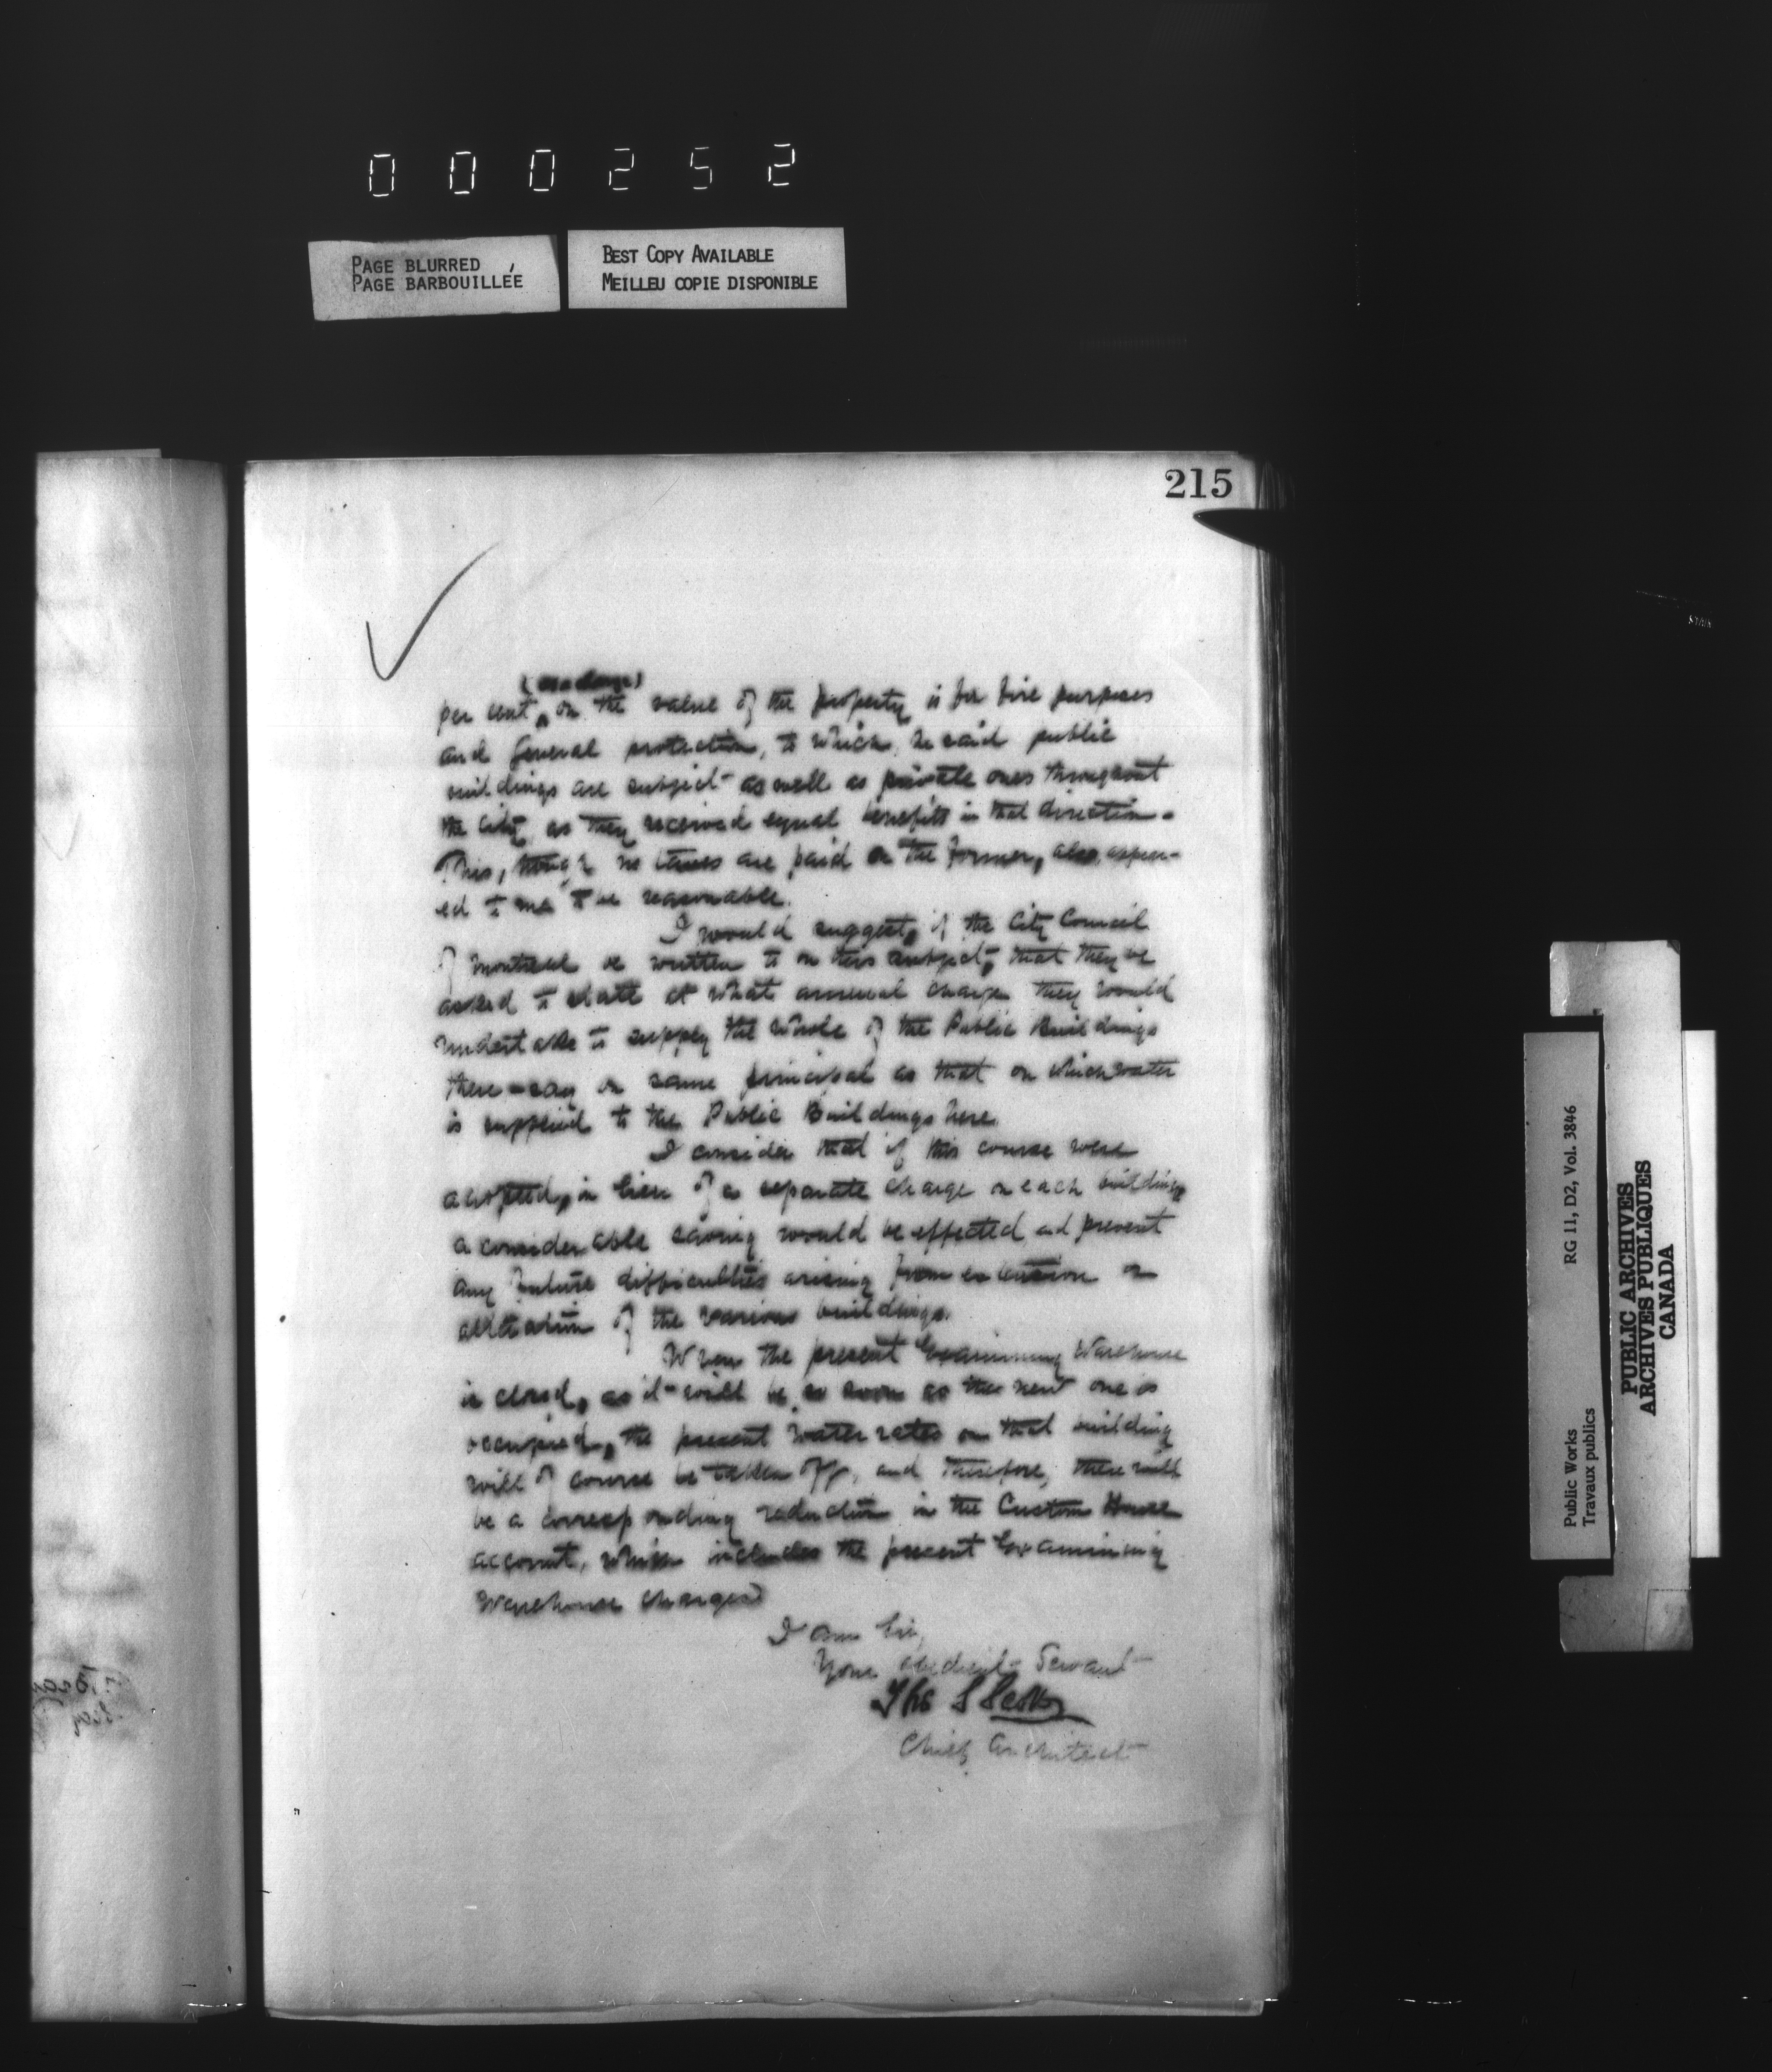 000252
PAGE BLURRED
PAGE BARBOUILLÉE
BEST COPY AVAILABLE
MEILLEU COPIE DISPONIBLE
215
per cent, on the value of the property is for fire purposes
and General protection, to which, he said public
buildings are subject as well as private ones throughout
the City, as they received equal benefits in that direction.
This, though no taxes are paid on the former, also appear-
ed to me to be reasonable.
I would suggest, if the City Council
of Montreal be written to on this subject, that they be
asked to state at what annual charge they would
undertake to supply the whole of the Public Buildings
there - say on same principal as that on which water
is supplied to the Public Buildings here.
I consider that if this course were
adopted, in lieu of a separate charge on each building,
a considerable saving would be effected and prevent
any future difficulties arising from extension or
alteration of the various buildings.
When the present Examining Warehouse
is closed, as it will be so soon as the new one is
occupied, the present water rates on that building
will of course be taken off, and therefore, there will
be a corresponding reduction in the Custom House
account, which includes the present Examining
Warehouse charges
I am Sir,
Your obedient Servant
Chief Architect
Public Works
Travaux publics
RG 11, D2, Vol. 3846
PUBLIC ARCHIVES
ARCHIVES PUBLIQUES
CANADA